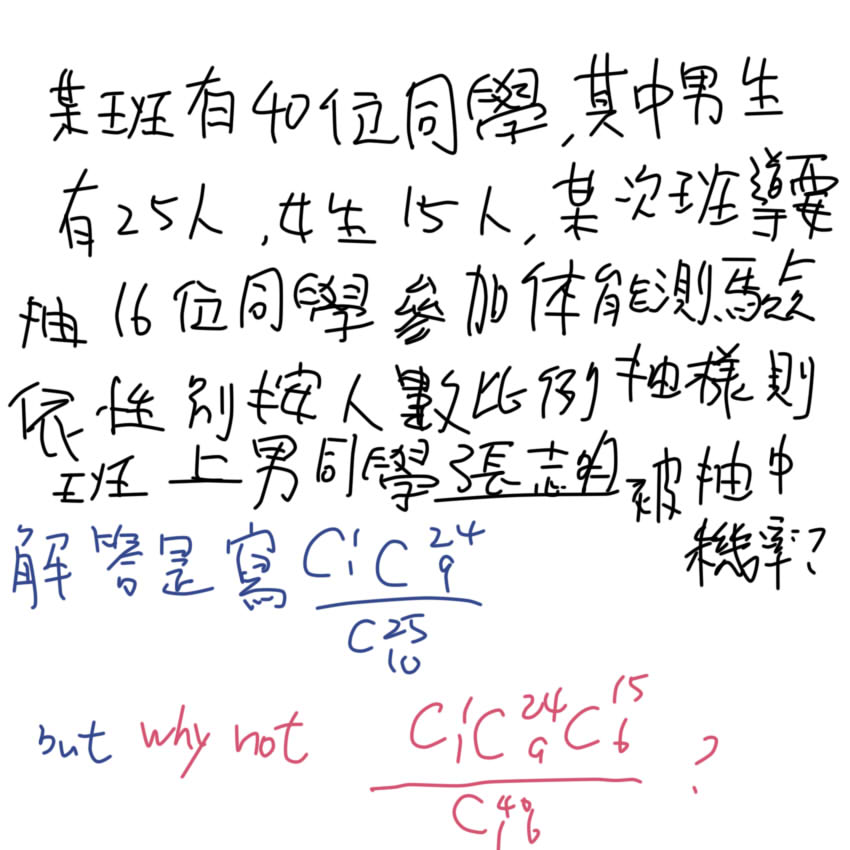 某班有40位同學,其中男生
有25人,女生15人,某次班導要
抽16位同學參加体能測驗
依性別按人數比例抽樣則
班上男同學張志明被抽中
機率?
解答是寫 C¹₁C²⁴₉ / C²⁵₁₀
but why not C¹₁C²⁴₉C¹⁵₆ / C⁴⁰₁₆ ?